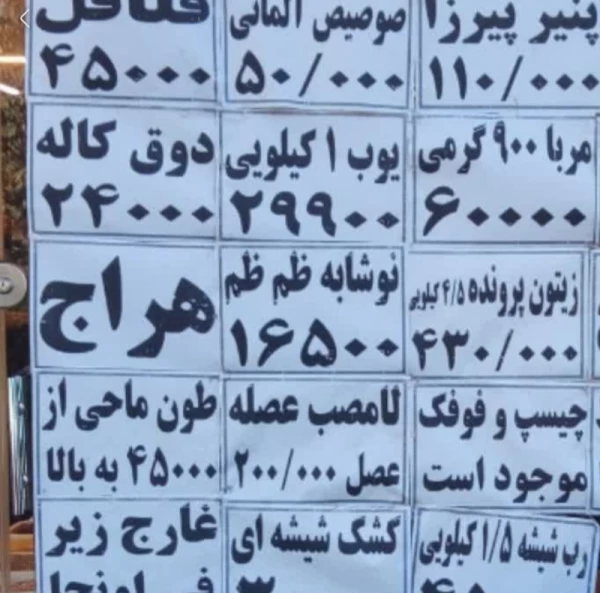 پنیر پیرزا
۱۱۰/۰۰۰
صوصیص آلمانی
۵۰/۰۰۰
فلافل
۴۵۰۰۰
مربا ۹۰۰ گرمی
۶۰۰۰۰
یوب ۱ کیلویی
۲۹۹۰۰
دوق کاله
۲۴۰۰۰
زیتون پرونده ۴/۵ کیلویی
۴۳۰/۰۰۰
نوشابه ظم ظم
۱۶۵۰۰
هراج
چیسپ و فوفک
موجود است
لامصب عصله
عصل ۲۰۰/۰۰۰
طون ماحی از
۴۵۰۰۰ به بالا
رب شیشه ۱/۵ کیلویی
کشک شیشه ای
غارچ زیر